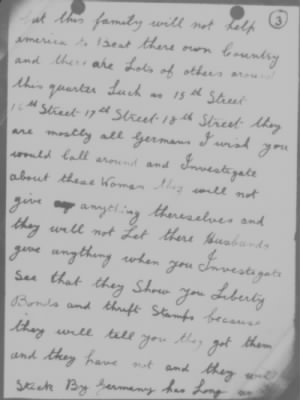 3
but this family will not help
america to Beat there own Country
and there are Lots of others around
this quarter Such as 15th Street
16th Street 17th Street 18th Street they
are mostly all Germans I wish you
would Call around and Investigate
about these Woman they will not
give anything thereselves and
they will not Let there Husbands
give anything when you Investigate
See that they Show you Liberty
Bonds and thrift Stamps because
they will tell you they got them
and they have not and they will
Stick By Germany has Long as